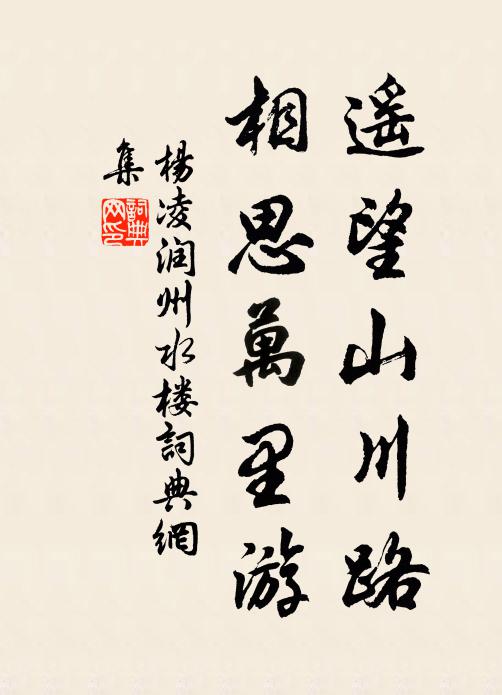 遥望山川路
相思萬里游
楊凌润州水楼詞典網
集
詞典
网印